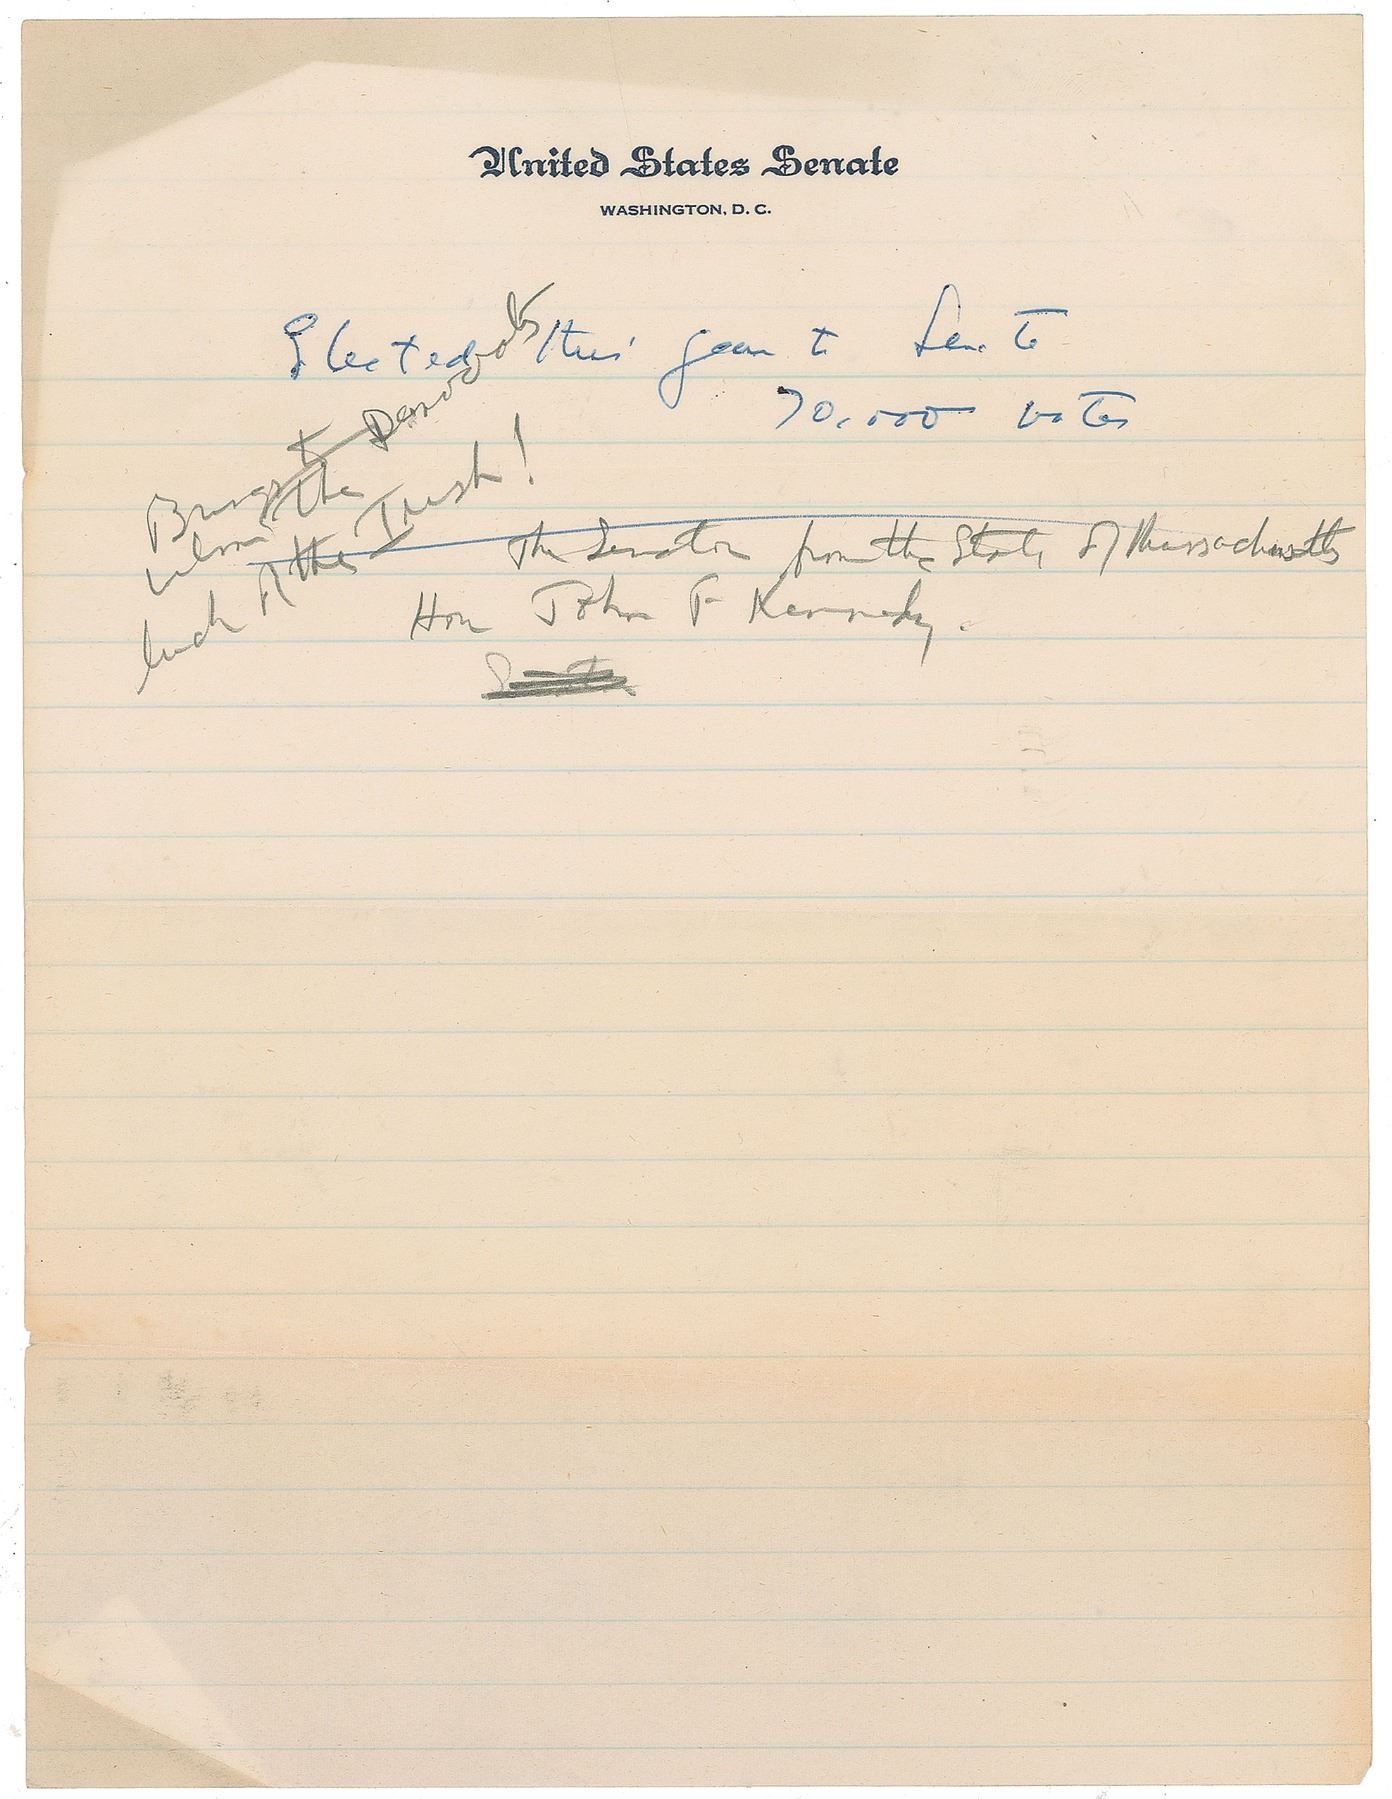 United States Senate
WASHINGTON, D. C.
Elected this year to Senate
70,000 votes
Brings to Democrats
the
luck of the Irish!
The Senator from the State of Massachusetts
Hon John F Kennedy.